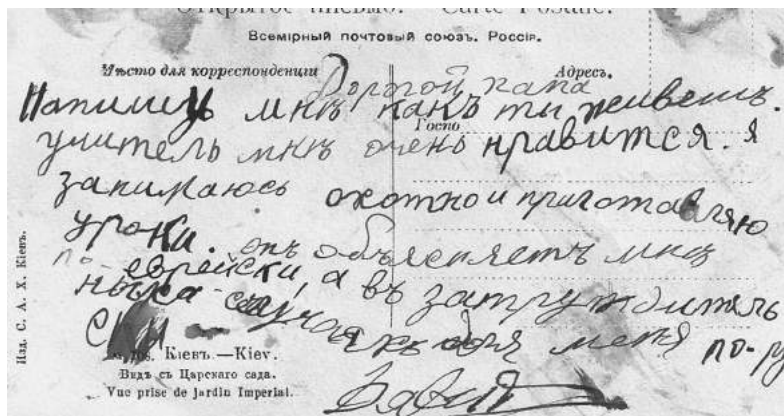 Открытое письмо. Carte Postale.
Всемірный почтовый союзъ. Россія.
Мѣсто для корреспонденціи
Адресъ.
Дорогой папа
Напишы мнѣ какъ ти живешъ
Госпо
учитель мнѣ очень нравится. я
занимаюсь охотно и приготавляю
уроки. онъ объясняетъ мнѣ
по-еврейски, а въ затруднитель
ныхъ случаяхъ для меня по-ру
ски
Изд. С. А. Х. Кіевъ.
Кіевъ.—Kiev.
Видъ съ Царскаго сада.
Vue prise de jardin Imperial.